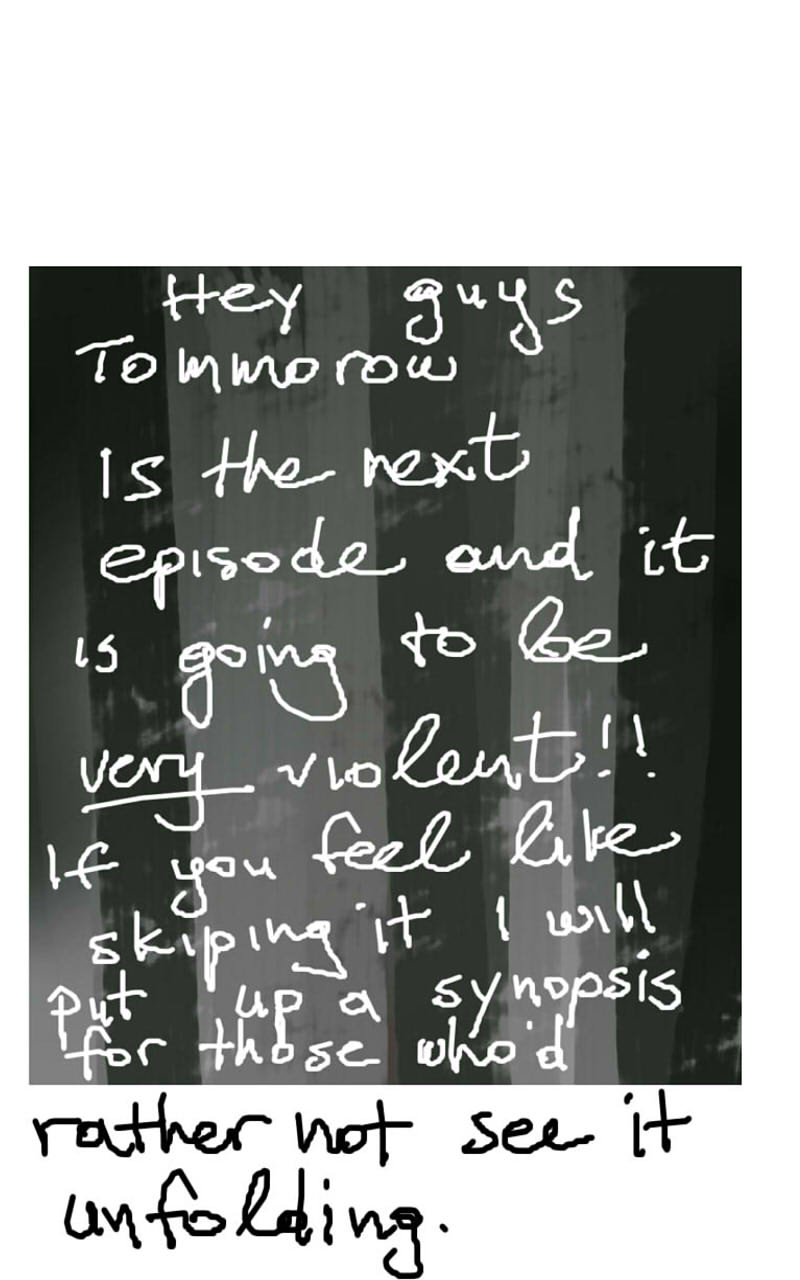 Hey guys
Tommorow
Is the next
episode and it
is going to be
very violent!!
If you feel like
skiping it I will
put up a synopsis
for those who'd
rather not see it
unfolding.